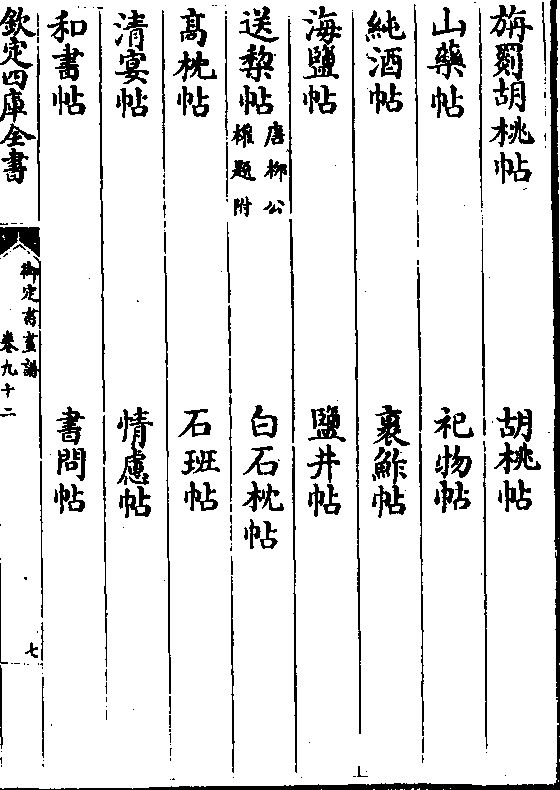 旃罽胡桃帖　胡桃帖
山藥帖　祀物帖
純酒帖　裹鮓帖
海鹽帖　鹽井帖
送棃帖唐柳公權題附　白石枕帖
髙枕帖　石班帖
清宴帖　情慮帖
和書帖　書問帖
欽定四庫全書
御定書畫譜
卷九十二
七